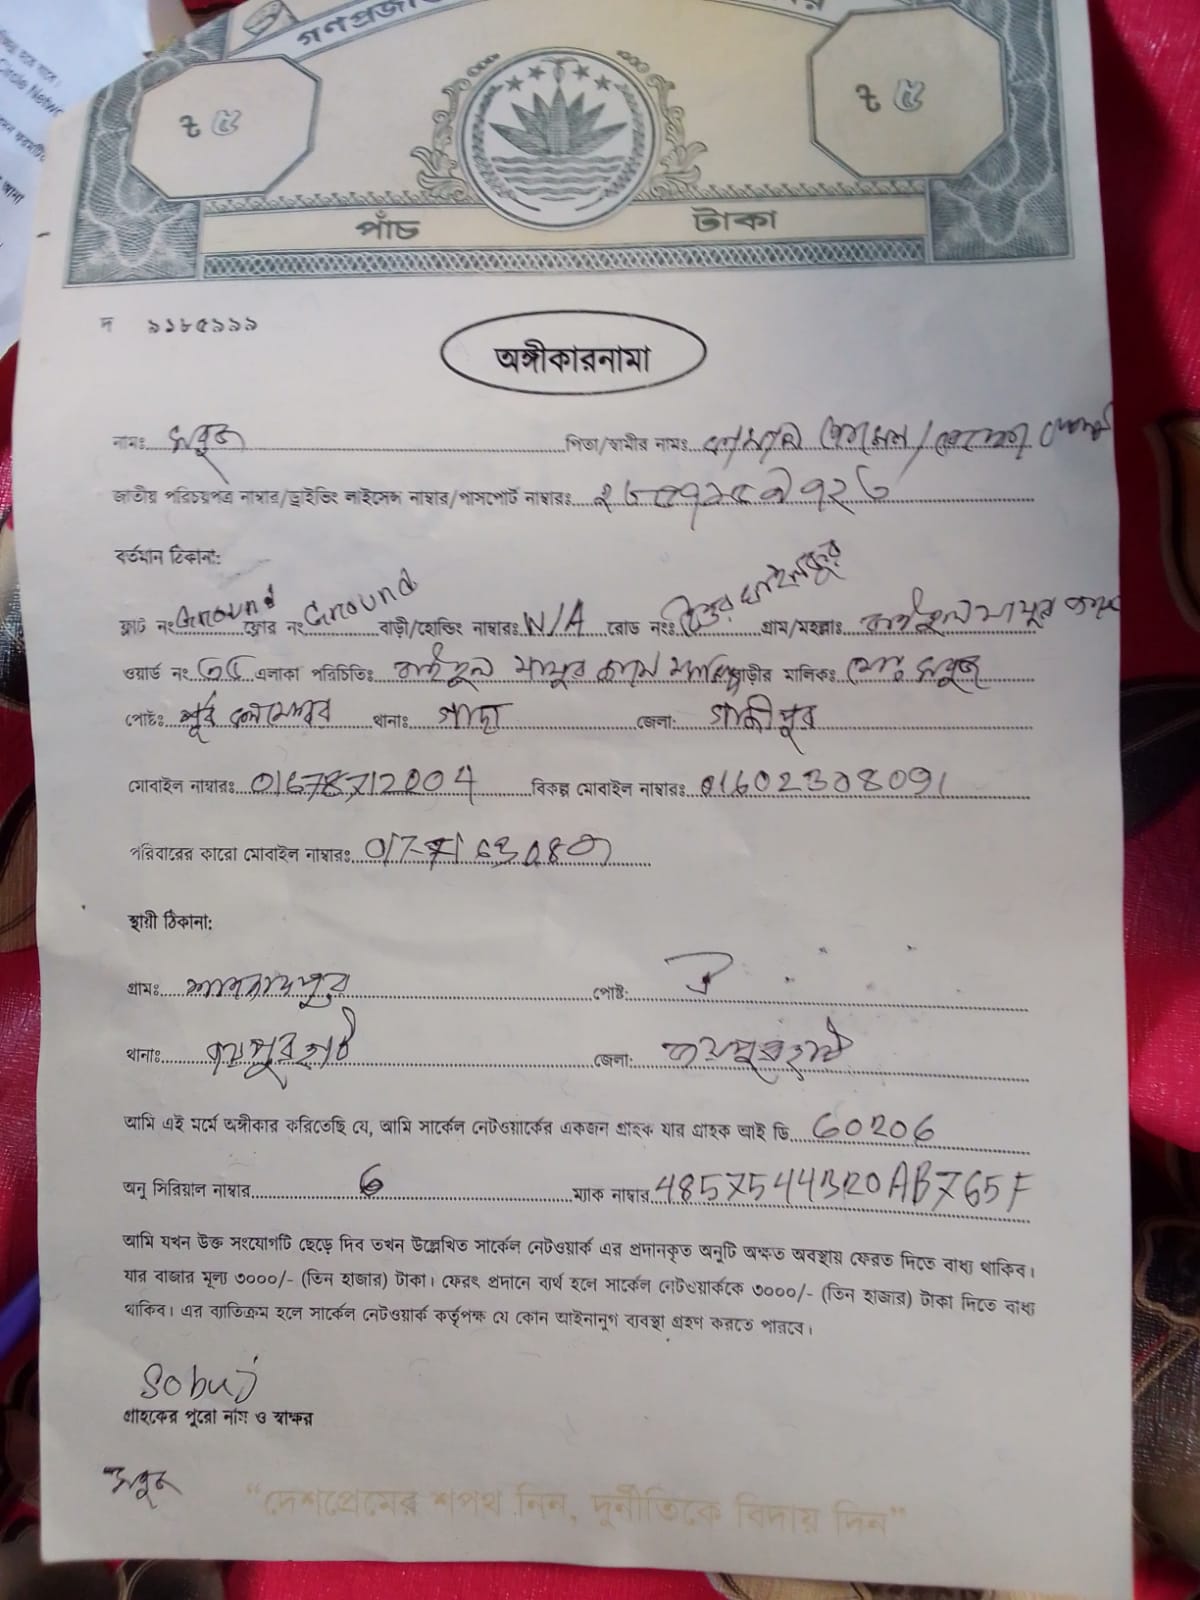 গণপ্রজা
৳ ৫ ৳ ৫
পাঁচ টাকা
দ ৯১৮৫৯৯৯
অঙ্গীকারনামা
নামঃ সবুজ পিতা/স্বামীর নামঃ
জাতীয় পরিচয়পত্র নাম্বার/ড্রাইভিং লাইসেন্স নাম্বার/পাসপোর্ট নাম্বারঃ
বর্তমান ঠিকানা:
ফ্লাট নং Ground ফ্লোর নং Ground বাড়ী/হোল্ডিং নাম্বারঃ N/A রোড নংঃ গ্রাম/মহল্লাঃ
ওয়ার্ড নং ৩৫ এলাকা পরিচিতিঃ বাড়ীর মালিকঃ মোঃ সবুজ
পোষ্টঃ পূর্ব কলমেশ্বর থানাঃ গাছা জেলা: গাজীপুর
মোবাইল নাম্বারঃ 01678712004 বিকল্প মোবাইল নাম্বারঃ 01602308091
পরিবারের কারো মোবাইল নাম্বারঃ
স্থায়ী ঠিকানা:
গ্রামঃ পোষ্ট: ঐ
থানাঃ জয়পুরহাট জেলা: জয়পুরহাট
আমি এই মর্মে অঙ্গীকার করিতেছি যে, আমি সার্কেল নেটওয়ার্কের একজন গ্রাহক যার গ্রাহক আই ডি 60206
অনু সিরিয়াল নাম্বার 6 ম্যাক নাম্বার
আমি যখন উক্ত সংযোগটি ছেড়ে দিব তখন উল্লেখিত সার্কেল নেটওয়ার্ক এর প্রদানকৃত অনুটি অক্ষত অবস্থায় ফেরত দিতে বাধ্য থাকিব।
যার বাজার মূল্য ৩০০০/- (তিন হাজার) টাকা। ফেরৎ প্রদানে ব্যর্থ হলে সার্কেল নেটওয়ার্ককে ৩০০০/- (তিন হাজার) টাকা দিতে বাধ্য
থাকিব। এর ব্যাতিক্রম হলে সার্কেল নেটওয়ার্ক কর্তৃপক্ষ যে কোন আইনানুগ ব্যবস্থা গ্রহণ করতে পারবে।
Sobuj
গ্রাহকের পুরো নাম ও স্বাক্ষর
সবুজ
“দেশপ্রেমের শপথ নিন, দুর্নীতিকে বিদায় দিন”